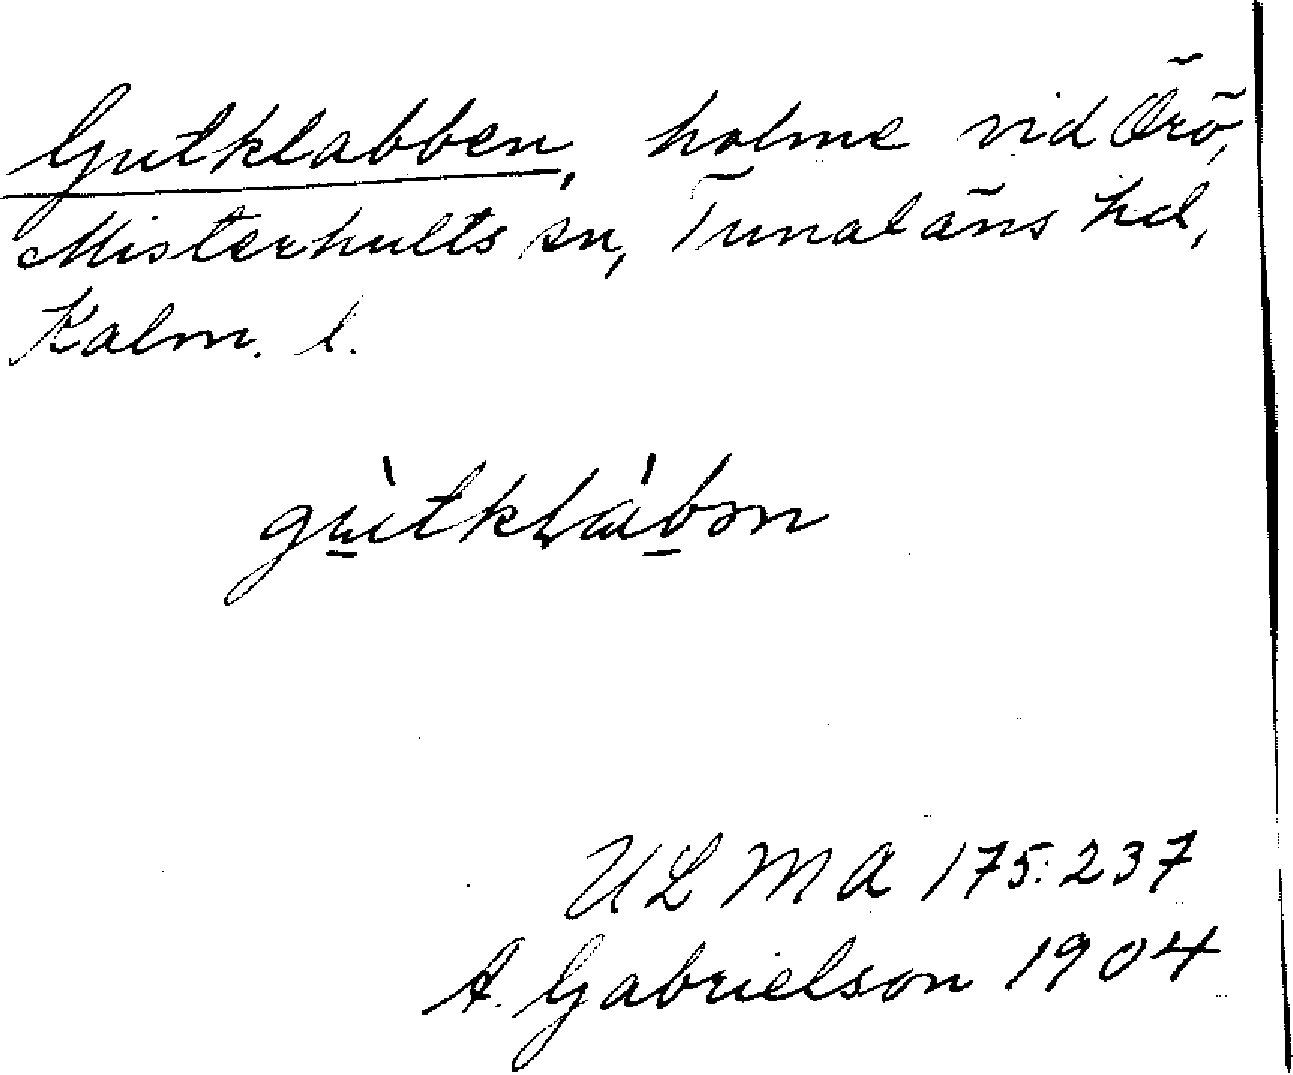 Gutklabben, holme vid Örö,
Misterhults sn, Tunaläns hd,
Kalm. l.
gù̲tklàb̲ən
ULMA 175:237
A. Gabrielson 1904